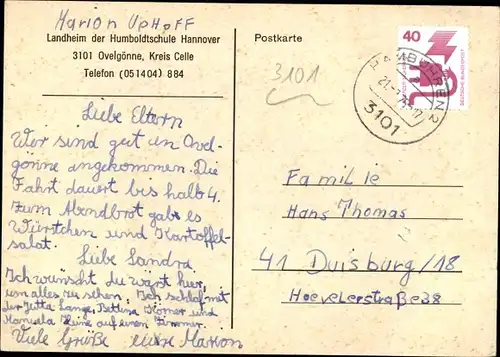 Marion UpHoFF
Landheim der Humboldtschule Hannover
3101 Ovelgönne, Kreis Celle
Telefon (05 14 04) 8 84
Liebe Eltern
Wir sind gut in Ovel-
gönne angekommen. Die
Fahrt dauert bis halb 4.
Zum Abendbrot gab es
Würtchen und Kartoffel-
salat.
Liebe Sandra
Ich wünscht du wärst hier,
um alles zu sehen. Ich schlaf mit
Jutta Lange, Bettina Körner und
Manuela auf einen Zimmer.
Viele Grüße eure Marion
Postkarte
3101
40
DEUTSCHE BUNDESPOST
HAMBÜHREN 2
3101
FamiLie
Hans Thomas
41 Duisburg/18
Hoevelerstraße 38